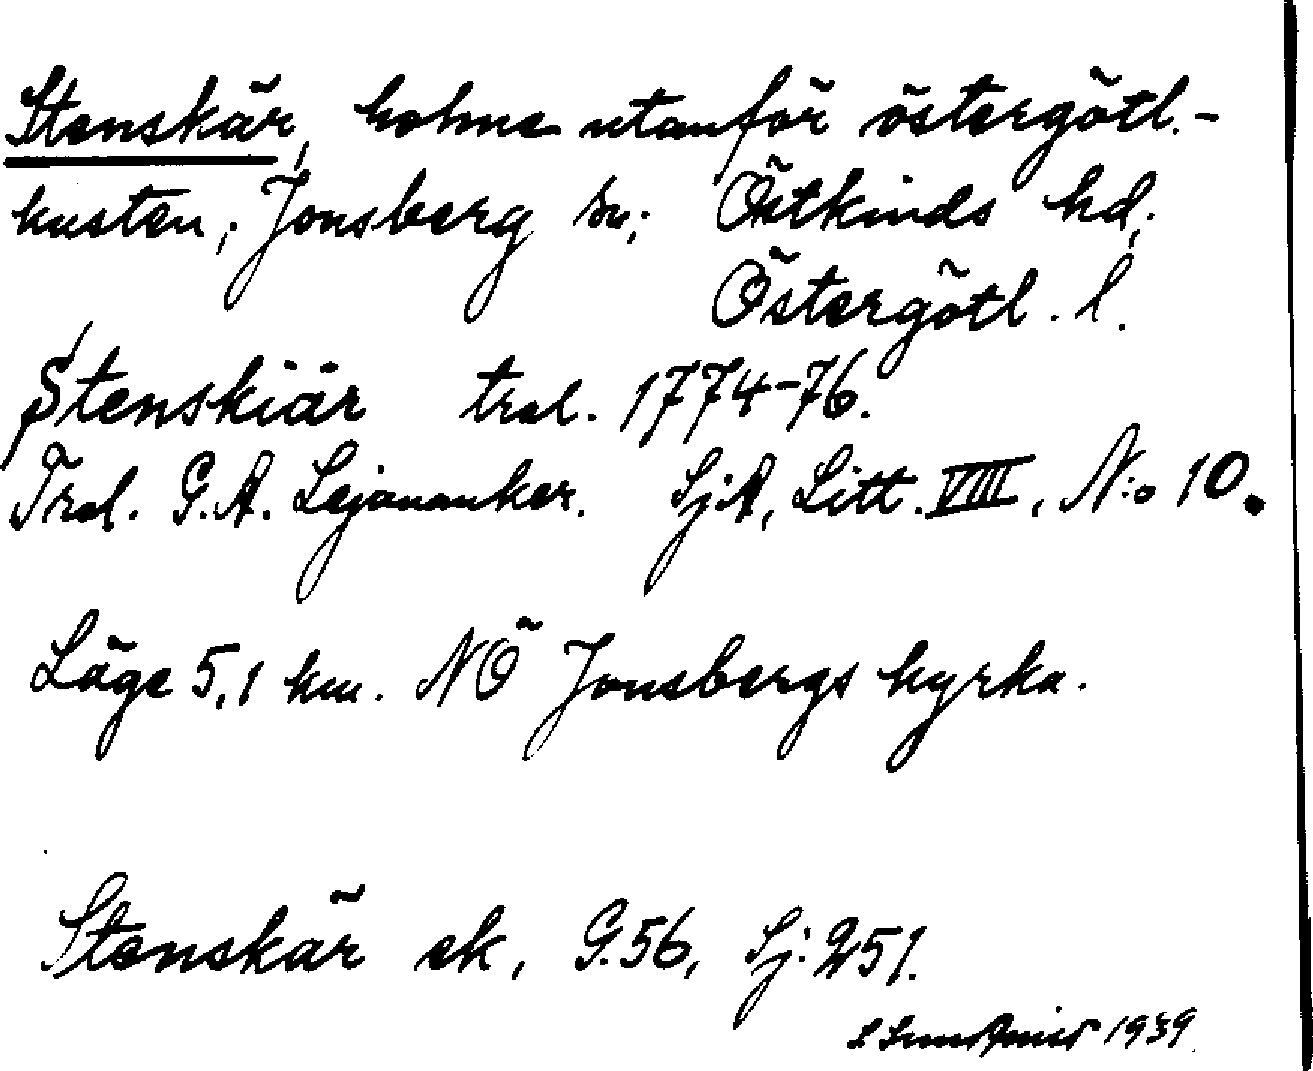 Stenskär, holme utanför östergötl.-
kusten, Jonsberg sn; Östkinds hd,
Östergötl. l.
Stenskiär trol. 1774-76.
Trol. G.A. Lejonanker. Sj.A, Litt. VIII, N:o 10.
Läge 5,1 km. NÖ Jonsbergs kyrka.
Stenskär ek, G.56, Sj: 251.
1939